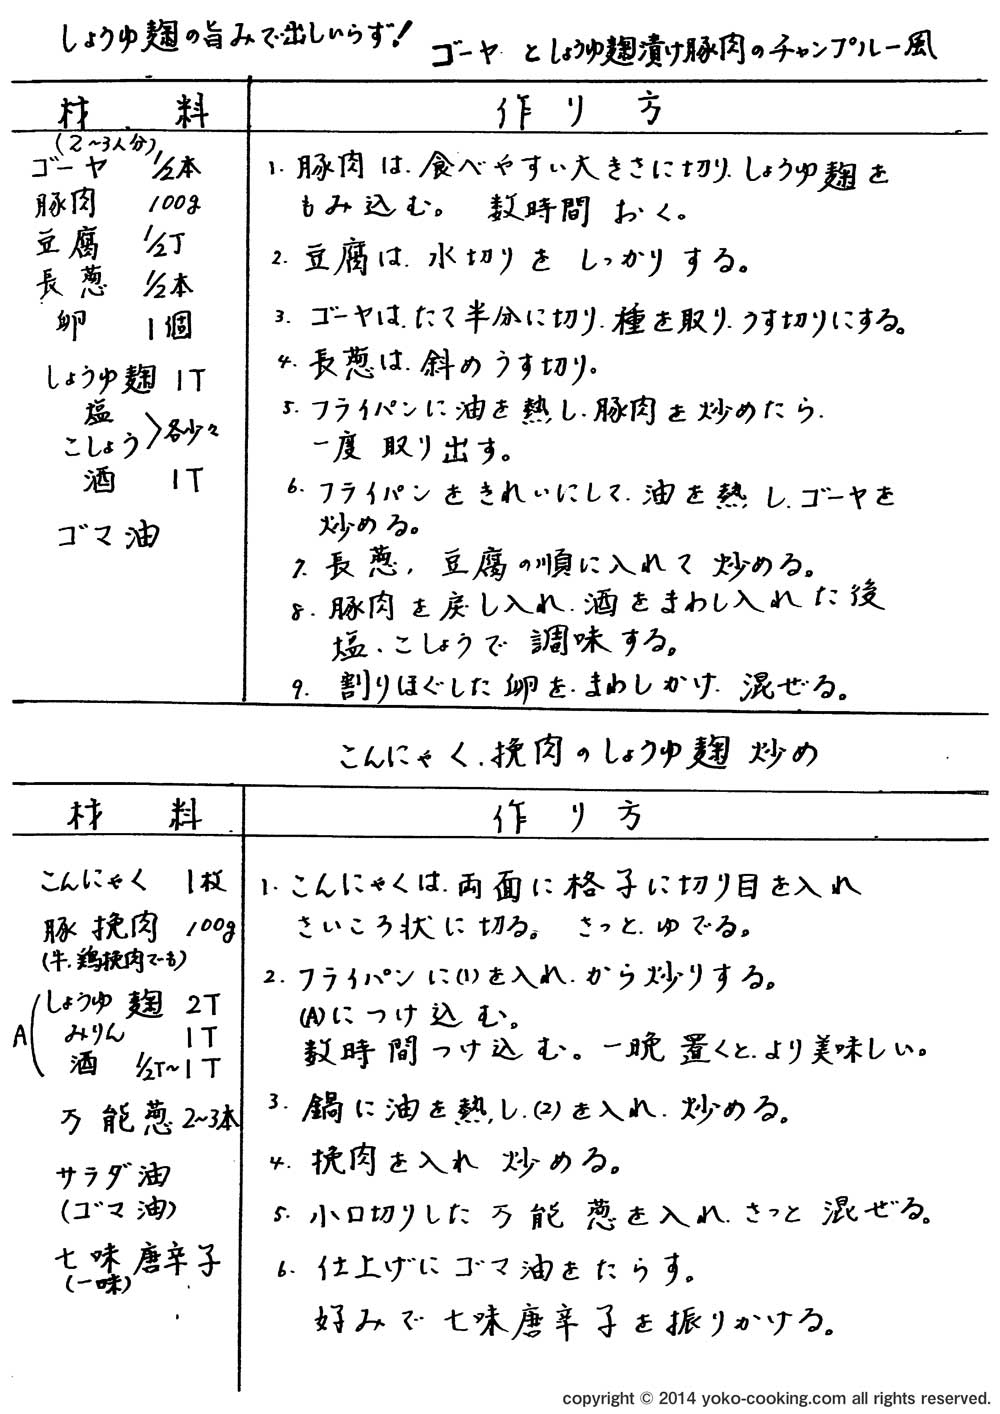 しょうゆ麹の旨みで出しいらず!
ゴーヤとしょうゆ麹漬け豚肉のチャンプルー風
材 料
(2~3人分)
ゴーヤ 1/2本
豚肉 100g
豆腐 1/2丁
長葱 1/2本
卵 1個
しょうゆ麹 1T
塩
こしょう 〉各少々
酒 1T
ゴマ油
作 り 方
1. 豚肉は、食べやすい大きさに切り、しょうゆ麹を
もみ込む。 数時間おく。
2. 豆腐は、水切りをしっかりする。
3. ゴーヤは、たて半分に切り、種を取り、うす切りにする。
4. 長葱は、斜めうす切り。
5. フライパンに油を熱し、豚肉を炒めたら、
一度取り出す。
6. フライパンをきれいにして、油を熱し、ゴーヤを
炒める。
7. 長葱、豆腐の順に入れて炒める。
8. 豚肉を戻し入れ、酒をまわし入れた後
塩、こしょうで調味する。
9. 割りほぐした卵を、まわしかけ、混ぜる。
こんにゃく、挽肉のしょうゆ麹炒め
材 料
こんにゃく 1枚
豚挽肉 100g
(牛、鶏挽肉でも)
A
しょうゆ麹 2T
みりん 1T
酒 1/2T~1T
万能葱 2~3本
サラダ油
(ゴマ油)
七味唐辛子
(一味)
作 り 方
1. こんにゃくは、両面に格子に切り目を入れ
さいころ状に切る。 さっと、ゆでる。
2. フライパンに(1)を入れ、から炒りする。
(A)につけ込む。
数時間つけ込む。一晩置くと、より美味しい。
3. 鍋に油を熱し、(2)を入れ、炒める。
4. 挽肉を入れ炒める。
5. 小口切りした万能葱を入れ、さっと混ぜる。
6. 仕上げにゴマ油をたらす。
好みで七味唐辛子を振りかける。
copyright © 2014 yoko-cooking.com all rights reserved.